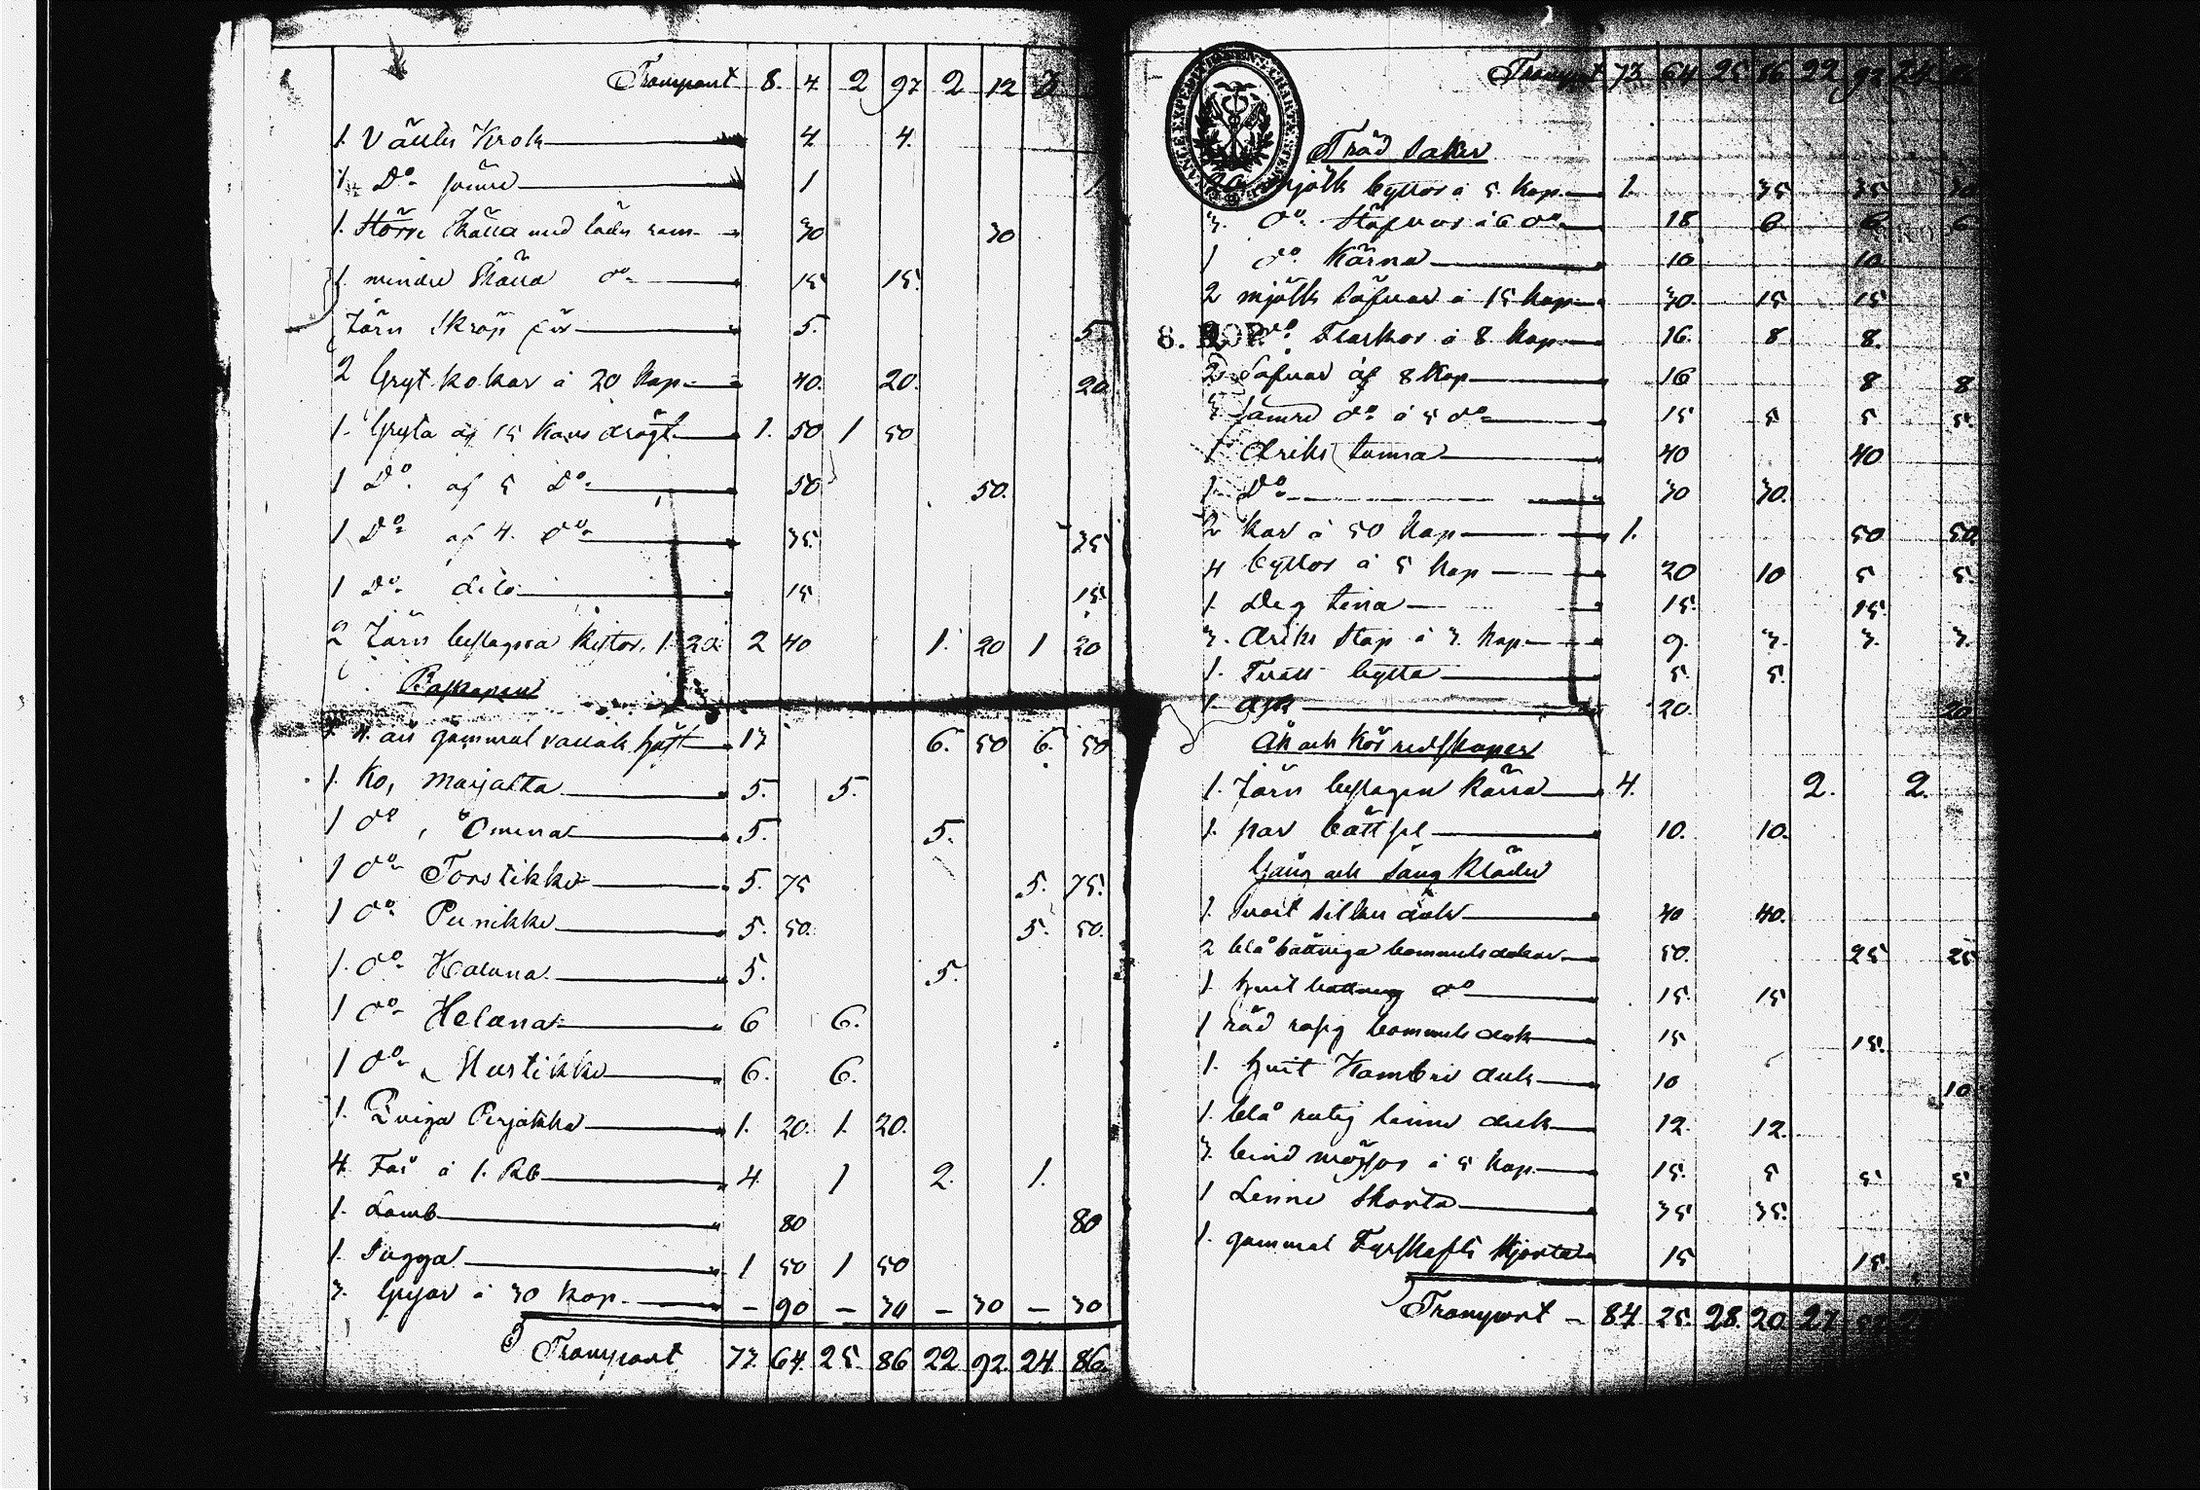 Transport 8. 4 2 97 2 12 3
1. Krok 4 4.
1 Do sämre 1 1
1. Större med läder 30 30
1. mindre do 15 15.
Järn Skräp 5. 5
2 Grytkokar à 20 kop 40. 20. 20
1. Gryta af 15 1. 50 1 50
1 Do af 5 Do 50 50.
1 Do af 4. do 35. 35
1 Do dito 15 15.
2 Järn beslagna kistor, 1. 20 2 40 1. 20 1 20
Boskapen
1. års gammal vallak häst 13 6. 50 6. 50
1. Ko, Marjatta 5. 5.
1 do, Omena 5. 5.
1 do Torstikki 5. 75 5. 75.
1 do 5. 50. 5. 50.
1. do Haluna 5. 5.
1 do Heluna 6 6.
1 do Mustikki 6. 6.
1. Qviga 1. 20. 1. 20.
4. Får à 1. Rb 4 1 2. 1.
1. Lamb 80 80
1. Sugga 1 50 1 50
3. Grisar à 30 kop. – 90 – 30 – 30 – 30
Transport 73 64. 25. 86 22 92. 24. 86.
Transport 73. 64 25 86 22 92 24 86
Träd saker
20 mjölk byttor à 5 kop 1. 35 35 30
3. do à 6 do 18 6. 6 6
1 do Kärna 10 10
2 mjölk såfvar à 15 kop 30. 15 15
8. KOP.
2 do à 8 kop 16. 8 8.
2 Såfvar af 8 kop 16 8 8
3 sämre do à 5 do 15 5 5 5.
1 driks tunna 40 40
1 Do 30 30.
2 kar à 50 kop 1. 50 50
4 byttor à 5 kop 20 10 5 5.
1. Deg tina 15. 15.
3. driks stop à 3 kop 9. 3. 3. 3.
1. Tvätt bytta 5 5.
1 ask 20. 20
Åk och kör redskaper
1. Järn beslagen kärra 4. 2. 2.
1. par 10. 10.
Gång och säng kläder
1. svart silkes duk 40 40.
2 blå bomuls dukar 50. 25 25
1. hvit do 15. 15
1 röd bomuls duk 15 15.
1. hvit duk 10 10
1. blå rutig linne duk 12. 12.
3 bind mössor à 5 kop 15. 5 5 5
1 Linne 35 35.
1. gammal 15 15
Transport – 84. 25. 28. 20. 27.